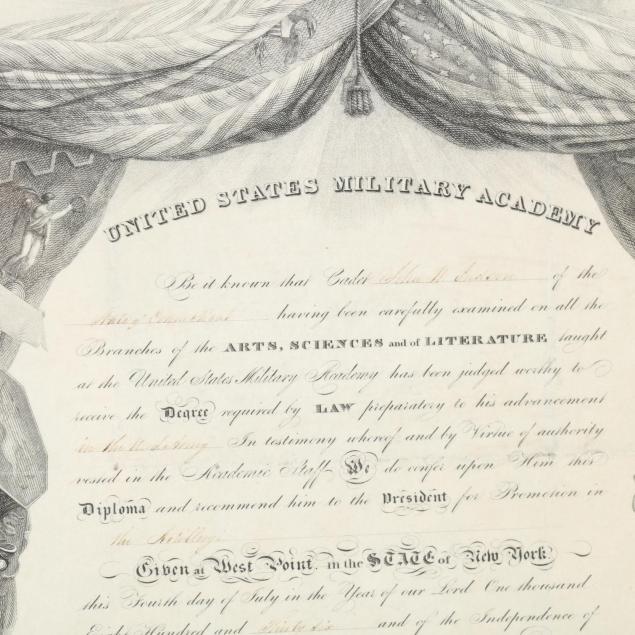 UNITED STATES MILITARY ACADEMY
Be it known that Cadet of the
State of Connecticut having been carefully examined on all the
Branches of the ARTS, SCIENCES and of LITERATURE taught
at the United States Military Academy has been judged worthy to
receive the Degree required by LAW preparatory to his advancement
in the U. S. Army In testimony whereof and by Virtue of authority
vested in the Academic Staff We do confer upon Him this
Diploma and recommend him to the President for Promotion in
the Artillery.
Given at West Point, in the STATE of New York
this Fourth day of July in the Year of our Lord One thousand
Eight Hundred and Thirty Six and of the Independence of